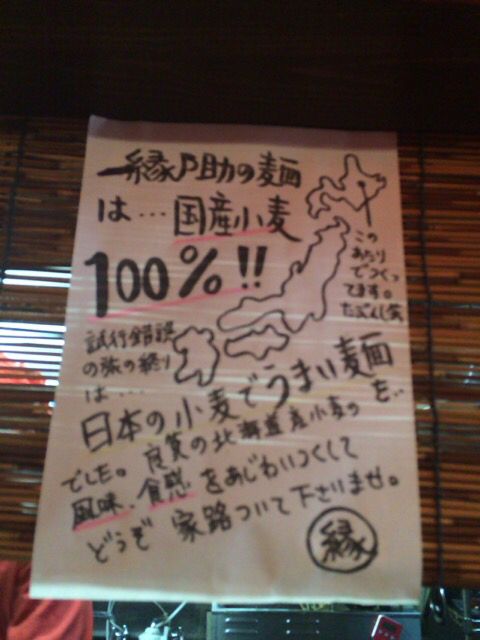 縁乃助の麺
は…国産小麦
100%!!
この
あたり
でつくっ
てます。
たぶん(笑
試行錯誤
の旅の終り
は…
日本の小麦でうまい麺を…
でした。良質の北海道産小麦の
風味、食感をあじわいつくして
どうぞ 家路ついて下さりませ。
縁